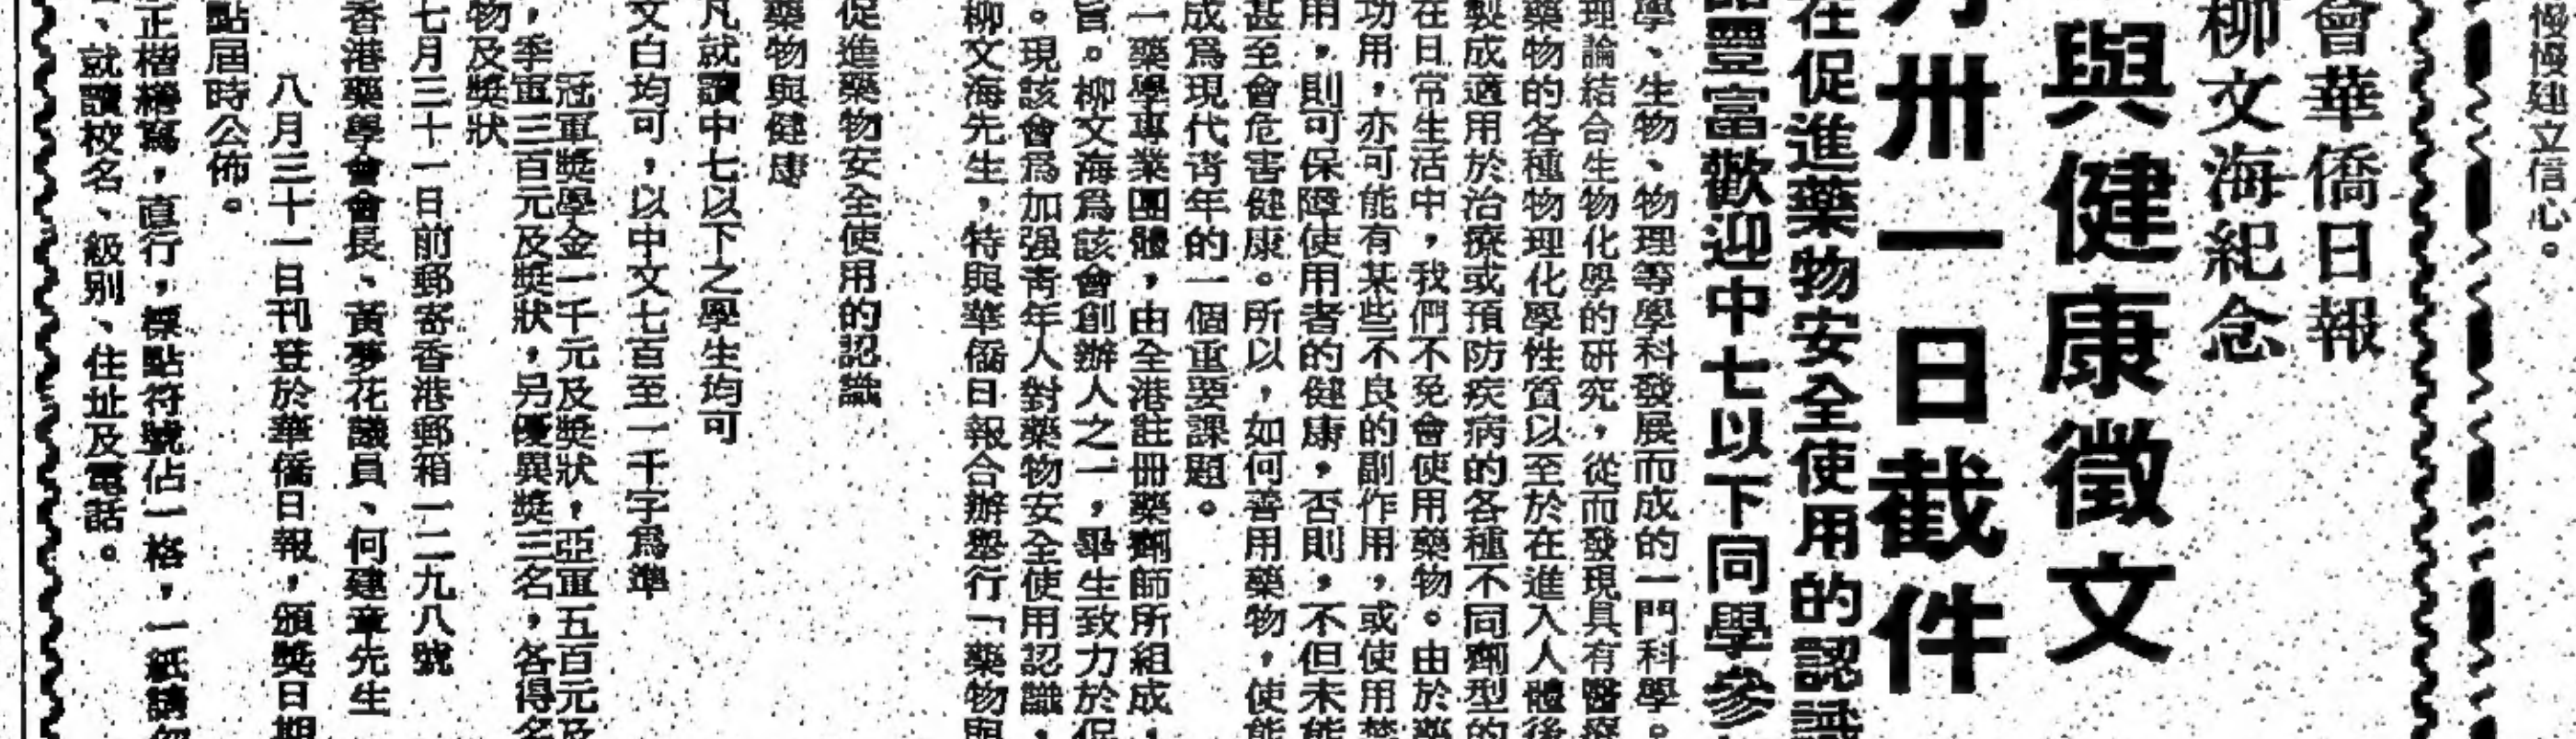 慢慢建立信心。
會華僑日報
柳文海紀念
與健康徵文
月卅一日截件
在促進藥物安全使用的認識
豐富歡迎中七以下同學參
學、生物、物理等學科發展而成的一門科學。
理論結合生物化學的研究，從而發現具有醫療
藥物的各種物理化學性質以至於在進入人體後
製成適用於治療或預防疾病的各種不同劑型的
在日常生活中，我們不免會使用藥物。由於藥
功用，亦可能有某些不良的副作用，或使用禁
用，則可保障使用者的健康，否則，不但未能
甚至會危害健康。所以，如何善用藥物，使能
成為現代青年的一個重要課題。
一藥學專業團體，由全港註冊藥劑師所組成，
旨。柳文海爲該會創辦人之一，畢生致力於促
。現該會爲加强青年人對藥物安全使用認識，
柳文海先生，特與華僑日報合辦舉行「藥物與
促進藥物安全使用的認識
藥物與健康
凡就讀中七以下之學生均可
文白均可，以中文七百至一千字爲準
冠軍獎學金一千元及獎狀，亞軍五百元及
，季軍三百元及獎狀，另優異獎三名，各得名
物及獎狀
七月三十一日前郵寄香港郵箱一二九八號
香港藥學會會長、黃夢花議員、何建章先生
八月三十一日刊登於華僑日報，頒獎日期
點屆時公佈。
正楷繕寫，直行，標點符號佔一格，一紙請勿
、就讀校名、級别、住址及電話。